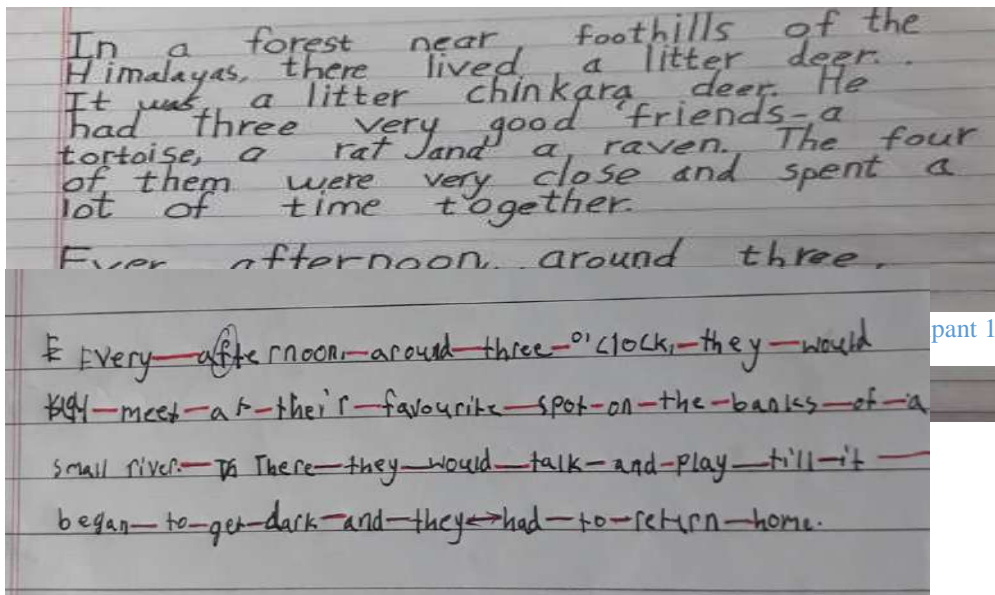 In a forest near foothills of the
Himalayas, there lived a litter deer.
It was a litter chinkara deer. He
had three very good friends-a
tortoise, a rat and a raven. The four
of them were very close and spent a
lot of time together.
Ever afternoon, around three
pant 1
E Every afternoon, around three o'clock, they would
meet at their favourite spot on the banks of a
small river. There they would talk and play till it
began to get dark and they had to return home.